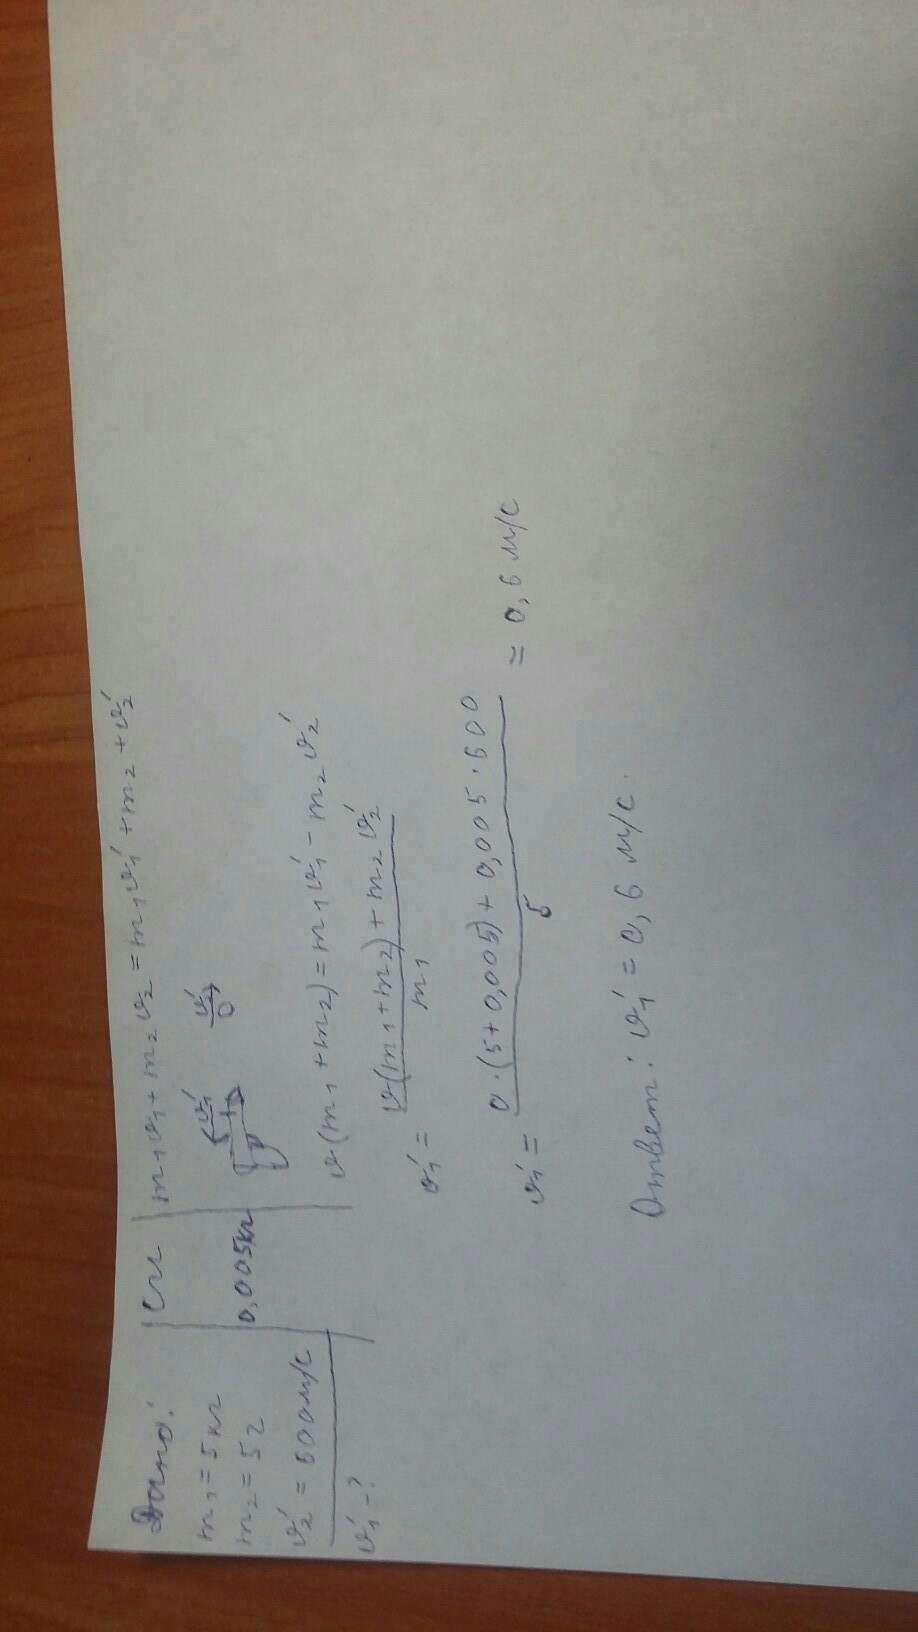 Дано:
m₁ = 5 кг
m₂ = 5 г
υ₂′ = 600 м/с
υ₁′ - ?
СИ
0,005 кг
m₁υ₁ + m₂υ₂ = m₁υ₁′ + m₂ + υ₂′
υ₁′ υ₂′
υ(m₁ + m₂) = m₁υ₁′ - m₂υ₂′
υ₁′ = υ(m₁ + m₂) + m₂υ₂′ / m₁
υ₁′ = 0 · (5 + 0,005) + 0,005 · 600 / 5 = 0,6 м/с
Ответ: υ₁′ = 0,6 м/с.